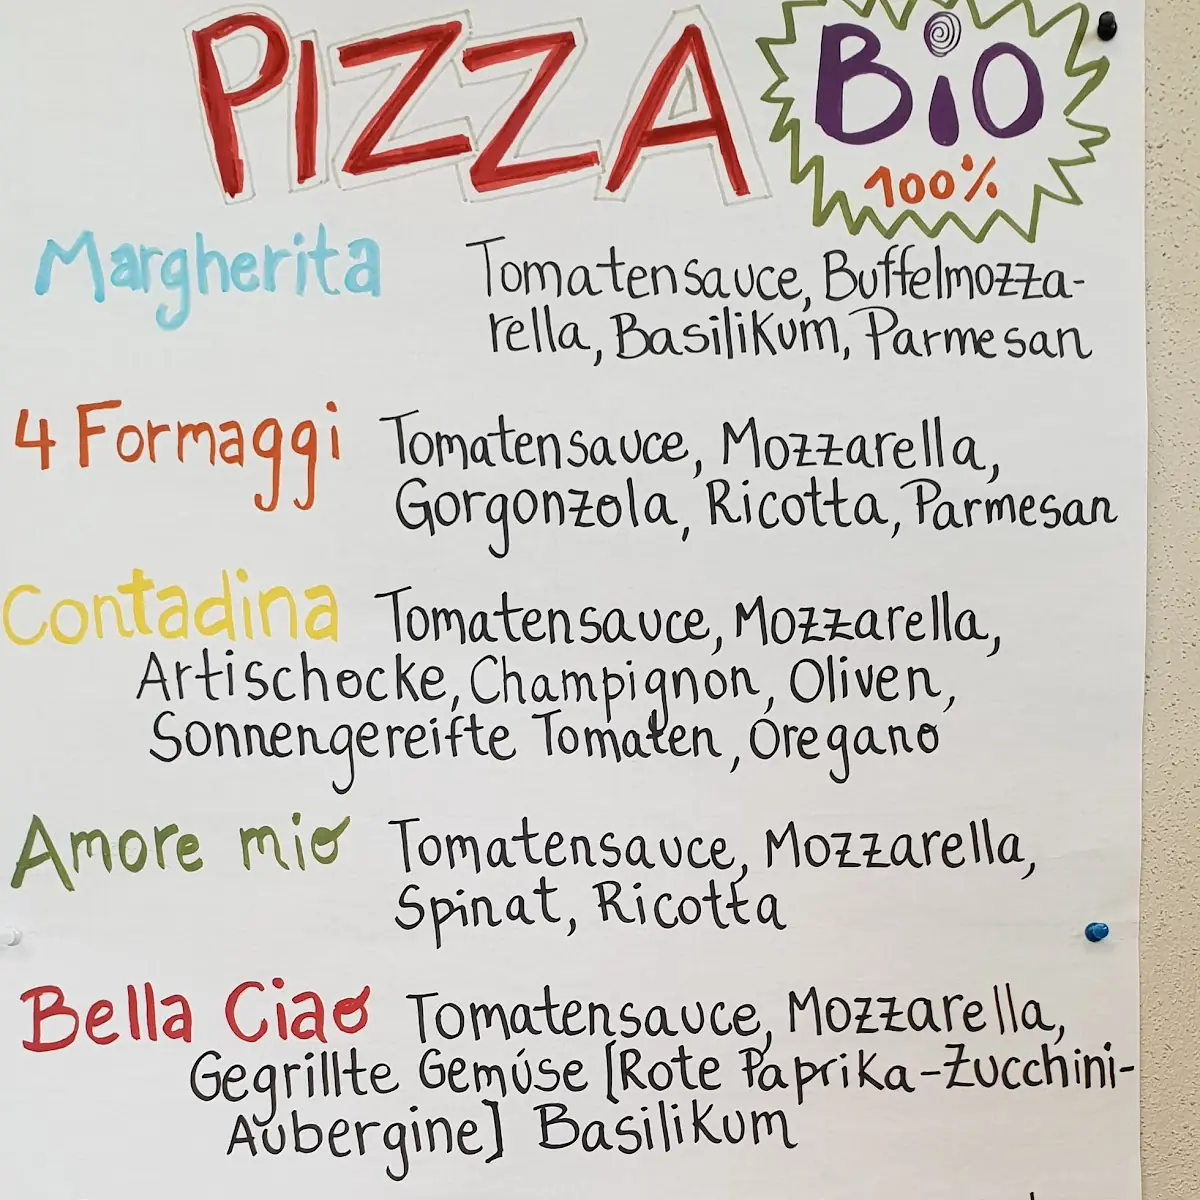 PIZZA BiO
100%
Margherita Tomatensauce, Buffelmozza-
rella, Basilikum, Parmesan
4 Formaggi Tomatensauce, Mozzarella,
Gorgonzola, Ricotta, Parmesan
Contadina Tomatensauce, Mozzarella,
Artischocke, Champignon, Oliven,
Sonnengereifte Tomaten, Oregano
Amore mio Tomatensauce, Mozzarella,
Spinat, Ricotta
Bella Ciao Tomatensauce, Mozzarella,
Gegrillte Gemúse [Rote Paprika-Zucchini-
Aubergine] Basilikum